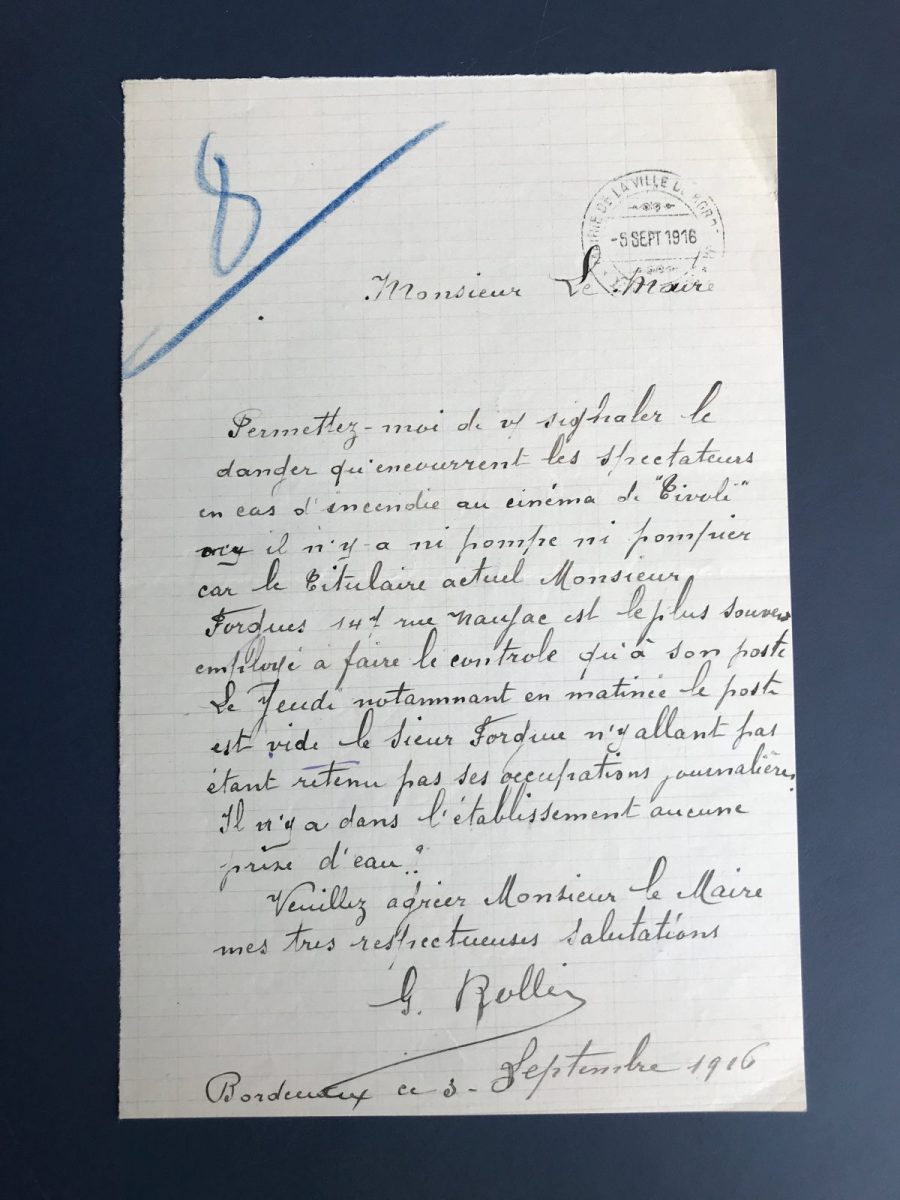 8
MAIRIE DE LA VILLE DE BORD
-5 SEPT 1916
Monsieur Le Maire
Permettez-moi de vs signaler le
danger qu'encourrent les spectateurs
en cas d'incendie au cinéma de "Tivoli"
il n'y-a ni pompe ni pompier
car le Titulaire actuel Monsieur
Forgues 14 rue Naujac est le plus souvent
employé à faire le controle qu'à son poste
Le Jeudi notamnant en matinée le poste
est vide le Sieur Forgue n'y allant pas
étant retenu pas ses occupations journalières
Il n'y a dans l'établissement aucune
prise d'eau..
Veuillez agréer Monsieur le Maire
mes tres respectueuses salutations
G. Rollin
Bordeaux ce 3 - Septembre 1916